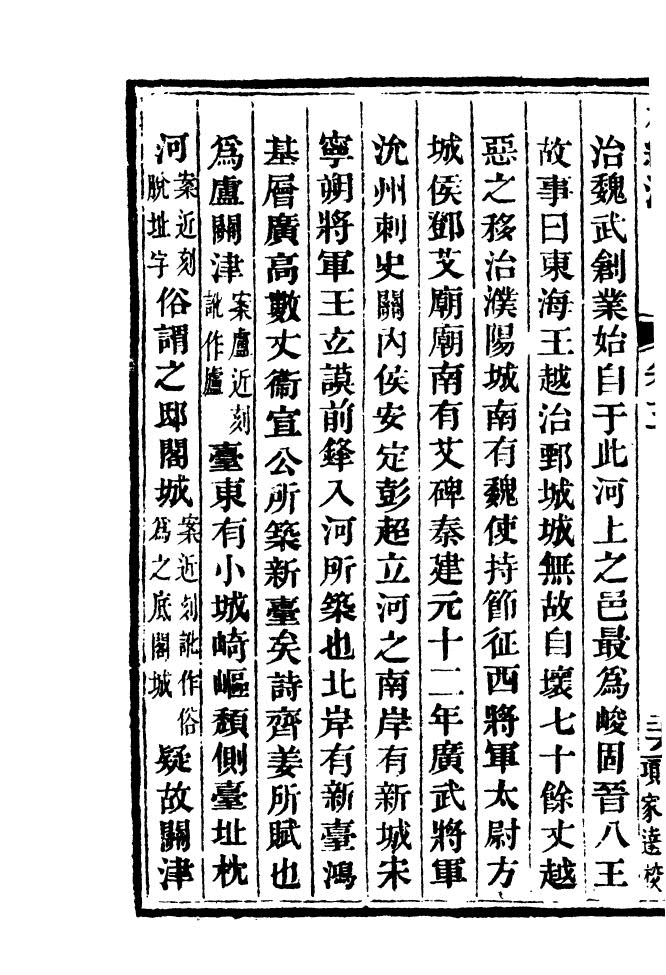 治魏武創業始自于此河上之邑最爲峻固晉八王
故事曰東海王越治鄄城城無故自壞七十餘丈越
惡之移治濮陽城南有魏使持節征西將軍太尉方
城侯鄧艾廟廟南有艾碑秦建元十二年廣武將軍
沇州刺史關內侯安定彭超立河之南岸有新城宋
寧朔將軍王玄謨前鋒入河所築也北岸有新臺鴻
基層廣高數丈衞宣公所築新臺矣詩齊姜所賦也
爲盧關津案盧近刻訛作廬臺東有小城崎嶇頹側臺址枕
河案近刻脫址字俗謂之邸閣城案近刻訛作俗爲之底閣城疑故關津
項家達校